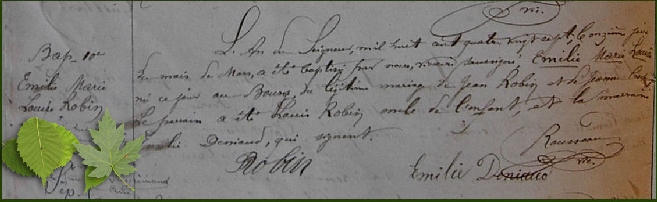 vic.
Bap. 10e
Emilie Marie
Louis Robin
L'An du Seigneur, mil huit cent quatre vingt sept, le onzième jour
du mois de Mars, a été baptisé par nous, vicaire soussigné, Emilie Marie Louis
né ce jour au Bourg, du légitime mariage de Jean Robin et de
Le parrain a été Louis Robin oncle de l'enfant, et la marraine
Emilie Deniaud, qui signent.
Robin
Emilie Deniaud
Rousseau
vic.